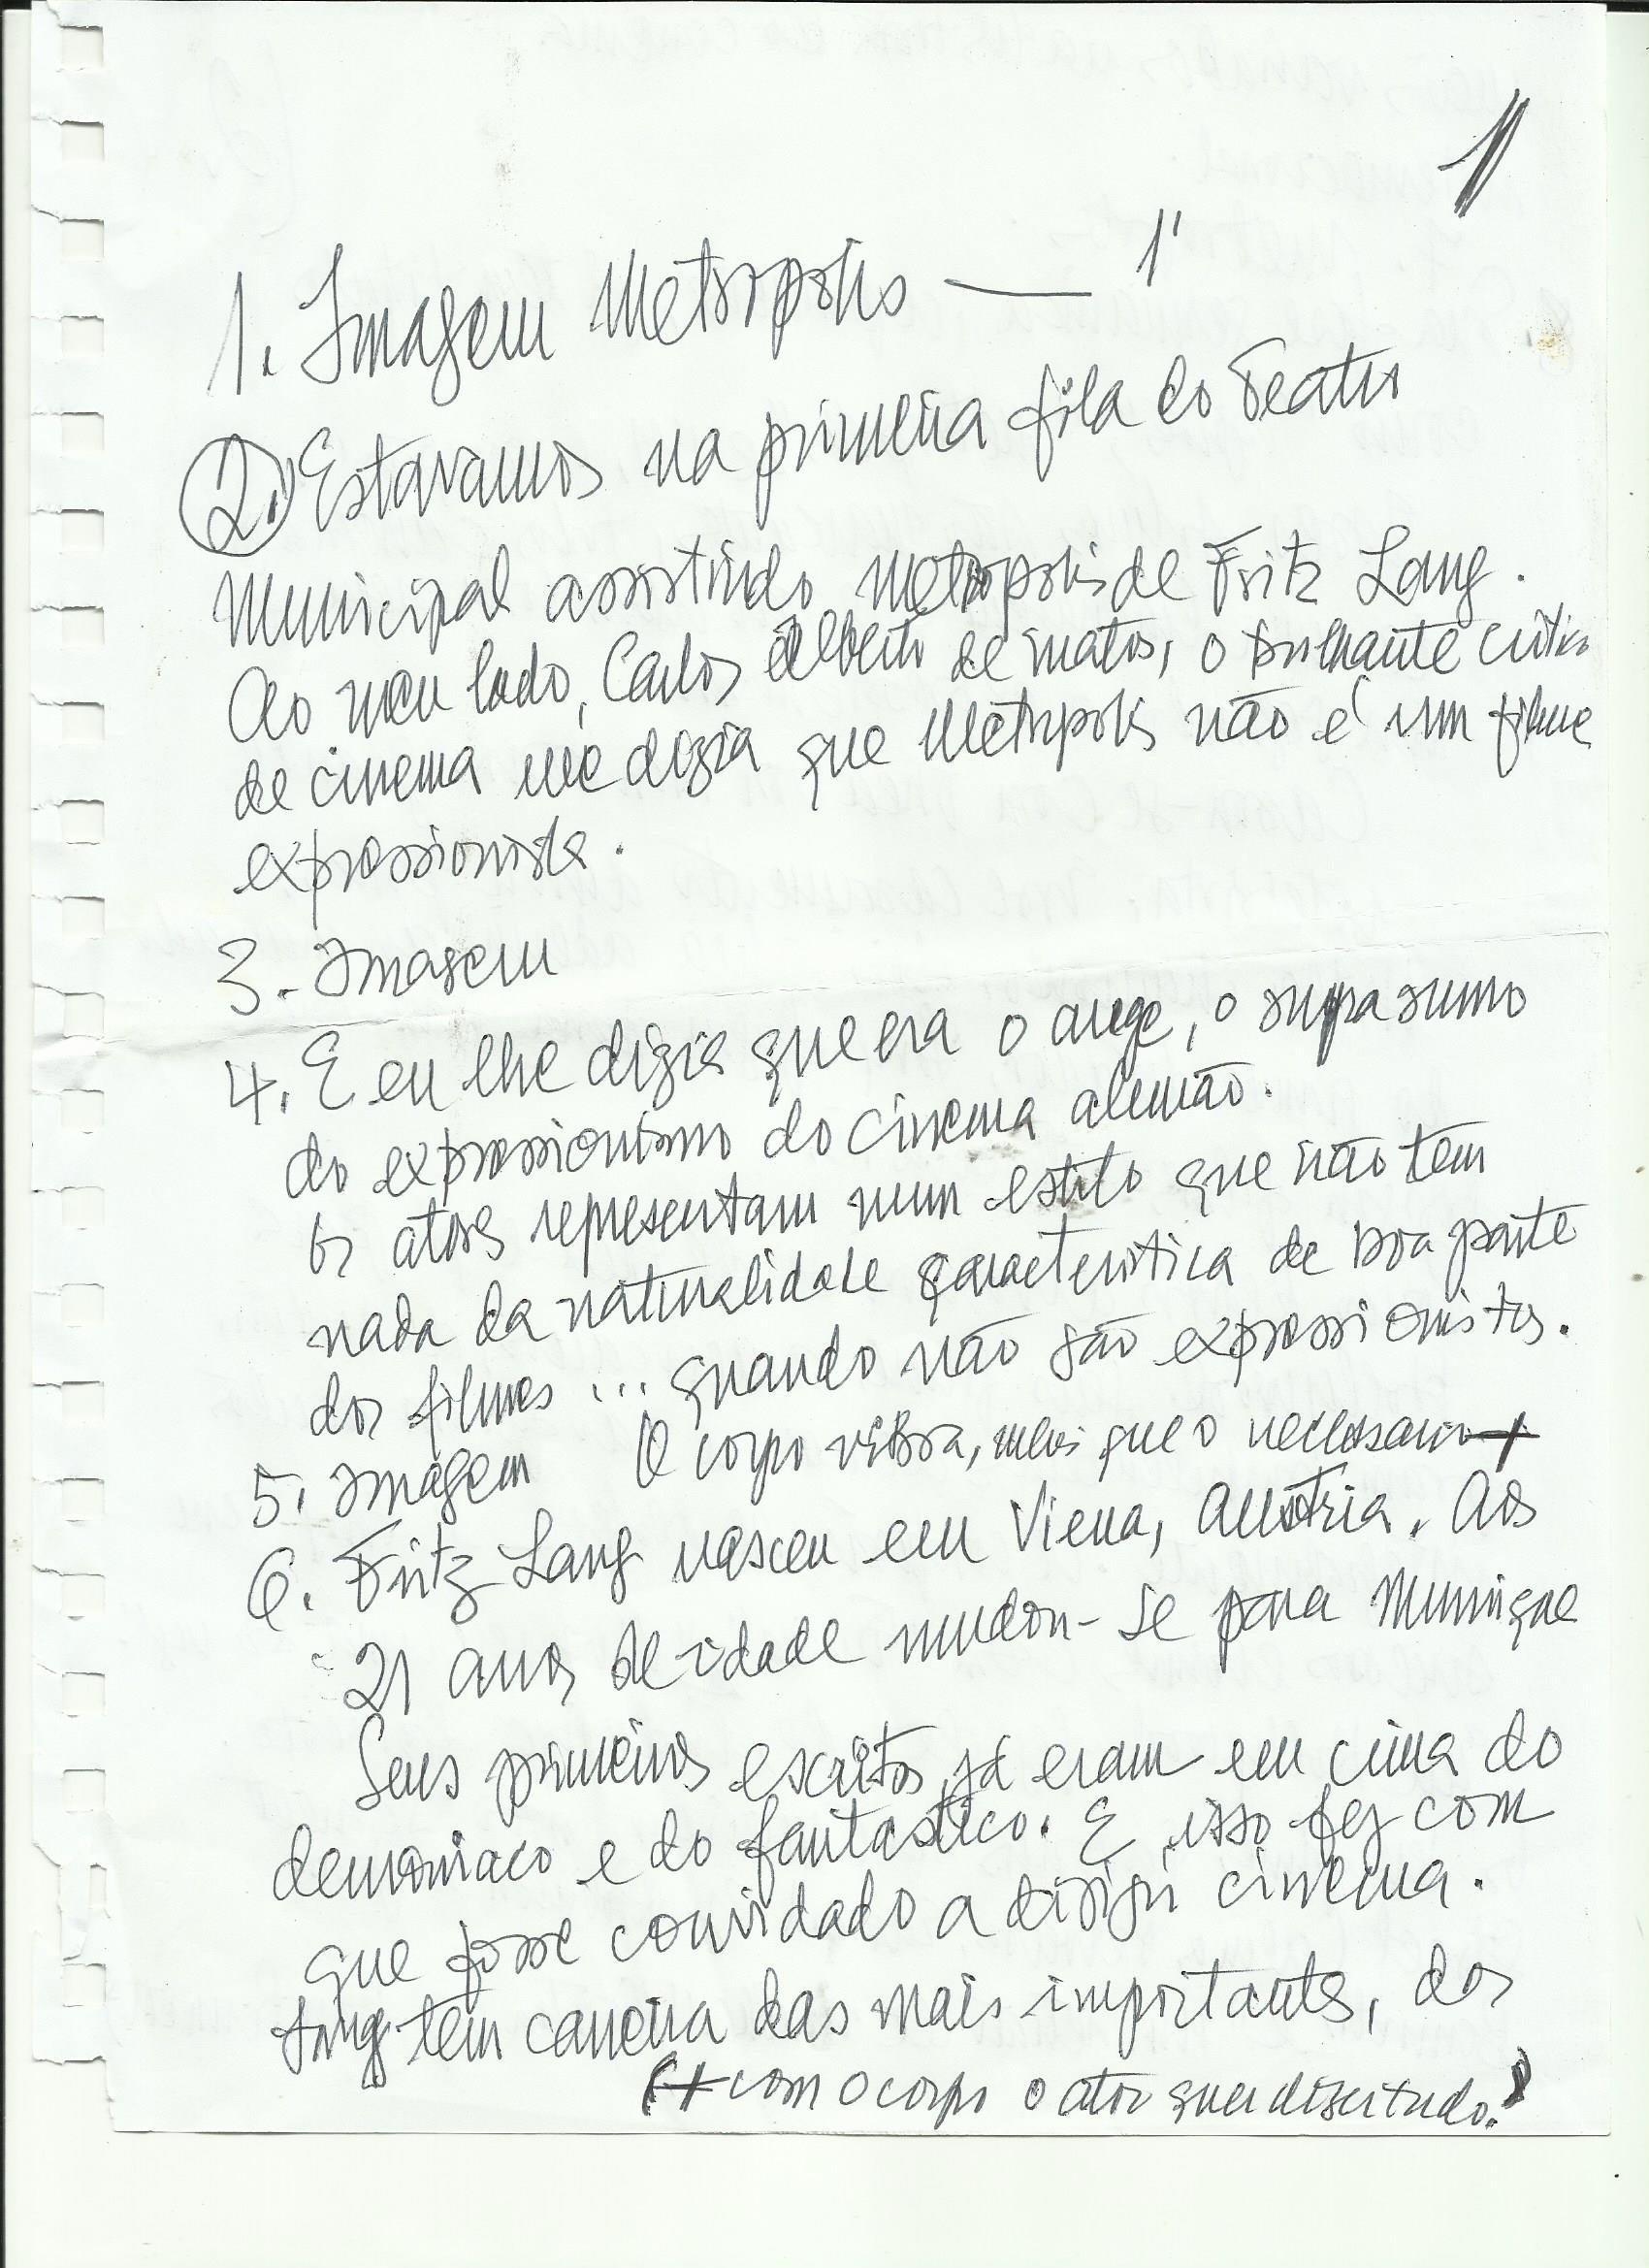 1
1. Imagem Metropolis — 1'
2. Estavamos na primeira fila do Teatro
Municipal assistindo Metropolis de Fritz Lang.
Ao meu lado, Carlos Alberto de Matos, o brilhante crítico
de cinema me dizia que Metropolis não é um filme
expressionista.
3. Imagem
4. E eu lhe dizia que era o auge, o suprasumo
do expressionismo do cinema alemão.
Os atores representam num estilo que não tem
nada da naturalidade caracteristica de boa parte
dos filmes ... quando não são expressionistas.
5. Imagem O corpo vibra, mais que o necessario +
6. Fritz Lang nasceu em Viena, Austria. Aos
21 anos de idade mudou-se para Munique
Seus primeiros escritos já eram em cima do
demoniaco e do fantastico. E isso fez com
que fosse convidado a dirigir cinema.
Lang tem carreira das mais importantes, dos
(+ com o corpo o ator quer dizer tudo.)